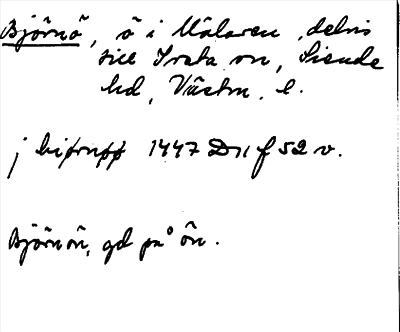 Björnö, ö i Mälaren, delvis
till Irsta sn, Siende
hd, Västm. l.
j biørnøø 1447 D11 f 52 v.
Björnön, gd på ön.